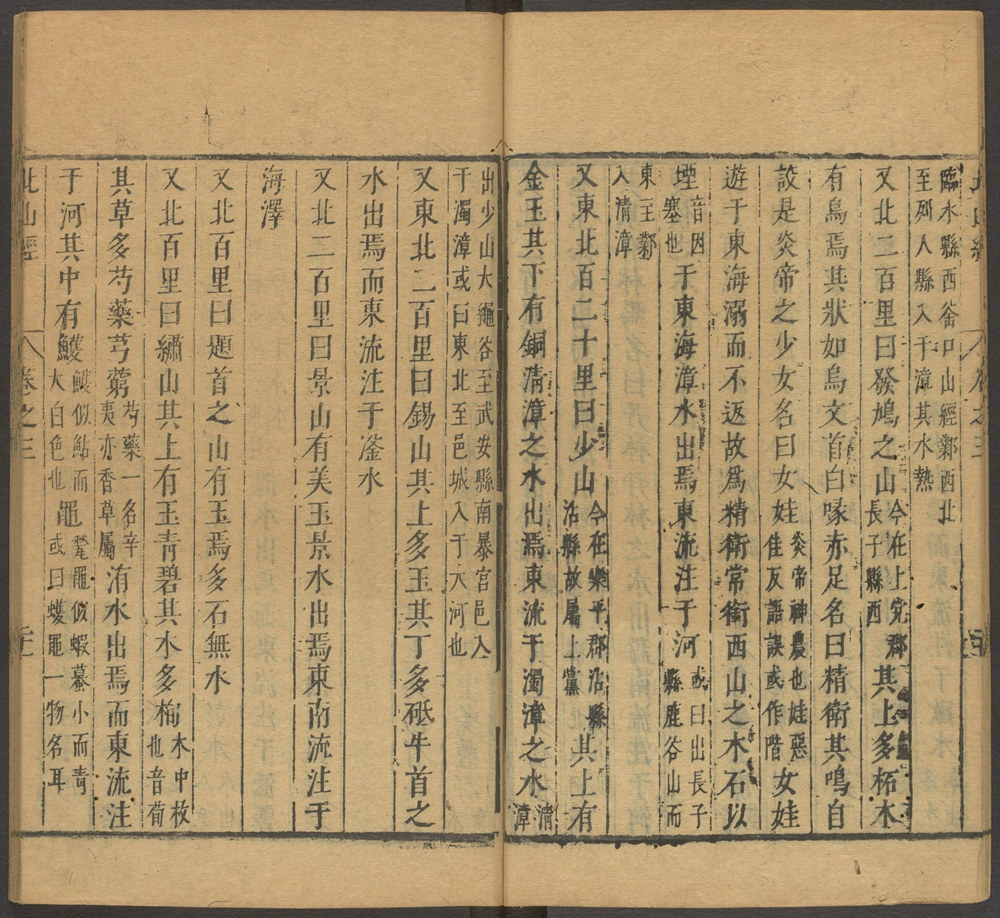 臨水縣西釜口山經鄴西北
至列人縣入于漳其水熱
又北二百里曰發鳩之山今在上党郡長子縣西其上多柘木
有鳥焉其狀如烏文首白喙赤足名曰精衛其鳴自
詨是炎帝之少女名曰女娃炎帝神農也娃惡佳反語誤或作階女娃
遊于東海溺而不返故爲精衛常銜西山之木石以
堙音因塞也于東海漳水出焉東流注于河或曰出長子縣鹿谷山而
東至鄴入清漳
又東北百二十里曰少山今在樂平郡沾縣沾縣故屬上黨其上有
金玉其下有銅清漳之水出焉東流于濁漳之水清漳
出少山大黽谷至武安縣南暴宮邑入
于濁漳或曰東北至邑城入于大河也
又東北二百里曰錫山其上多玉其下多砥牛首之
水出焉而東流注于滏水
又北二百里曰景山有美玉景水出焉東南流注于
海澤
又北百里曰題首之山有玉焉多石無水
又北百里曰繡山其上有玉青碧其木多栒木中枚也音荀
其草多芍藥芎藭芍藥一名辛夷亦香草屬洧水出焉而東流注
于河其中有鱯鱯似鮎而大白色也黽鼊黽似蝦蟇小而青或曰螻黽一物名耳
北山經 卷之三